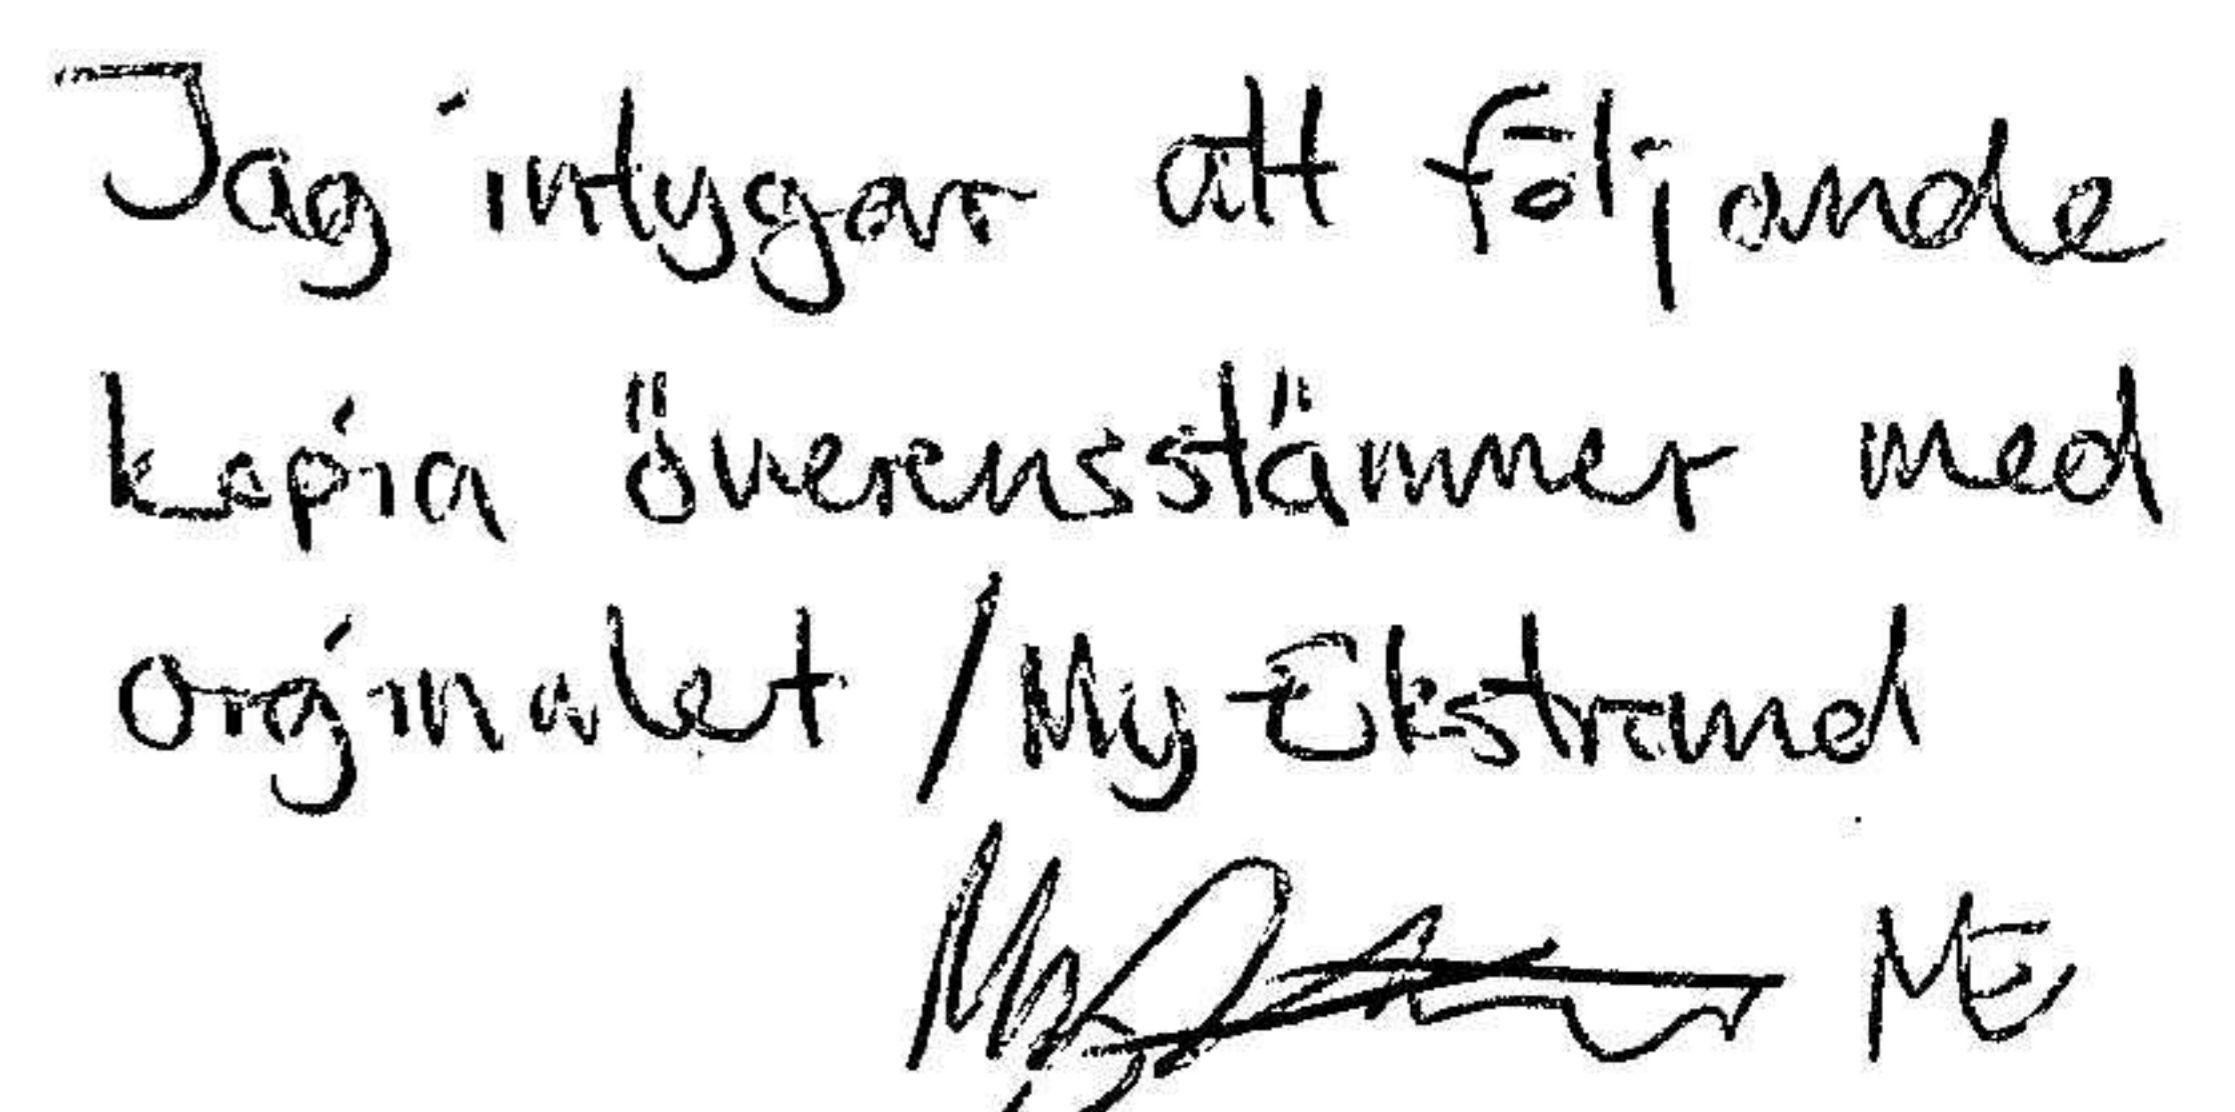 Jag intygar att följande
kopia överensstämmer med
orginalet / My Ekstrand
ME